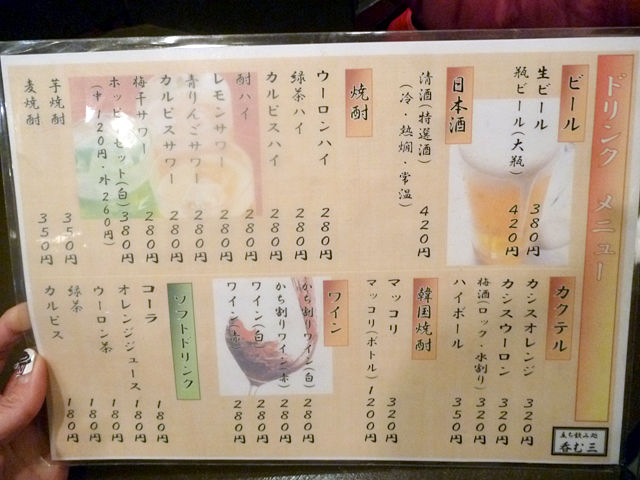 ドリンク メニュー
ビール
生ビール 380円
瓶ビール(大瓶) 420円
日本酒
清酒(特選酒) 420円
(冷・熱燗・常温)
焼酎
ウーロンハイ 280円
緑茶ハイ 280円
カルピスハイ 280円
酎ハイ 280円
レモンサワー 280円
青りんごサワー 280円
カルピスサワー 280円
梅干サワー 280円
ホッピーセット(白) 380円
(中120円・外260円)
芋焼酎 350円
麦焼酎 350円
カクテル
カシスオレンジ 320円
カシスウーロン 320円
梅酒(ロック・水割り) 320円
ハイボール 350円
韓国焼酎
マッコリ 320円
マッコリ(ボトル) 1200円
ワイン
かち割りワイン(白) 280円
かち割りワイン(赤) 280円
ワイン(白) 280円
ワイン(赤) 280円
ソフトドリンク
コーラ 180円
オレンジジュース 180円
ウーロン茶 180円
緑茶 180円
カルピス 180円
立ち飲み処
呑む三